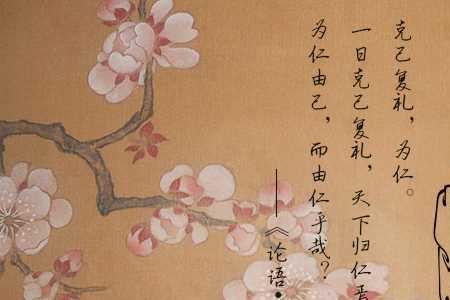 克己复礼，为仁。
一日克己复礼，天下归仁焉
为仁由己，而由仁乎哉？
——《论语·